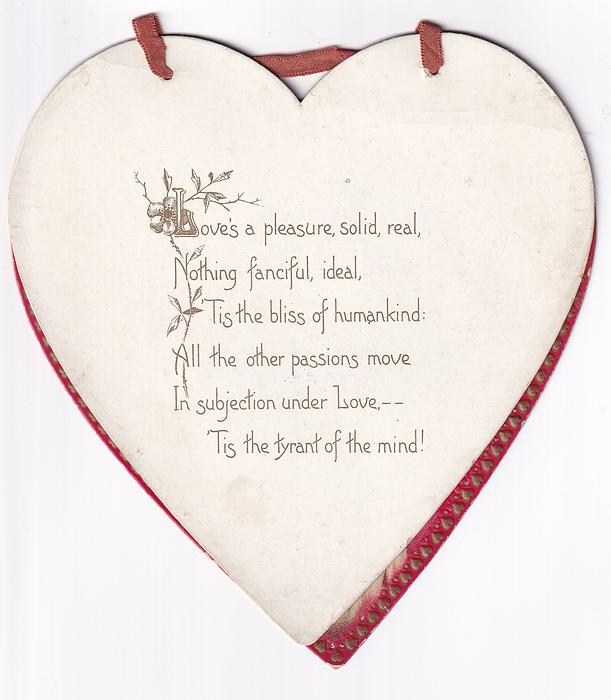 Love's a pleasure, solid, real,
Nothing fanciful, ideal,
'Tis the bliss of humankind:
All the other passions move
In subjection under Love,--
'Tis the tyrant of the mind!